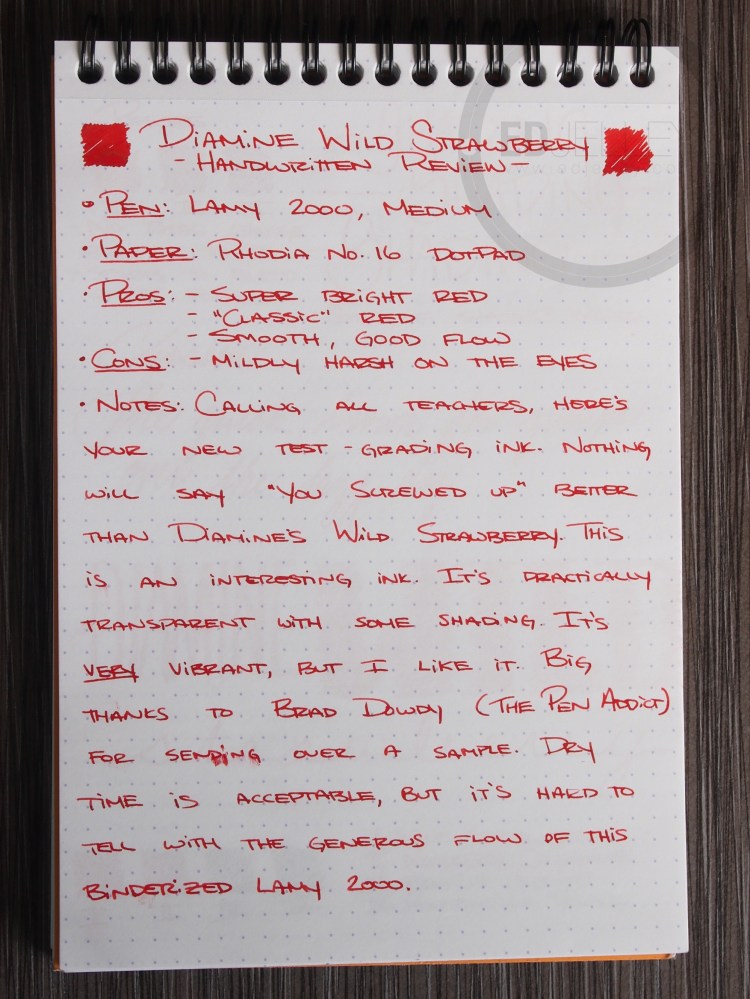 Diamine Wild Strawberry
- Handwritten Review -
• Pen: Lamy 2000, Medium
• Paper: Rhodia No. 16 DotPad
• Pros: - Super bright red
- "Classic" red
- Smooth, good flow
• Cons: - Mildly harsh on the eyes
• Notes: Calling all teachers, here's
your new test-grading ink. Nothing
will say "You Screwed up" better
than Diamine's Wild Strawberry. This
is an interesting ink. It's practically
transparent with some shading. It's
very vibrant, but I like it. Big
thanks to Brad Dowdy (The Pen Addict)
for sending over a sample. Dry
time is acceptable, but it's hard to
tell with the generous flow of this
Binderized Lamy 2000.
EDJELLEY